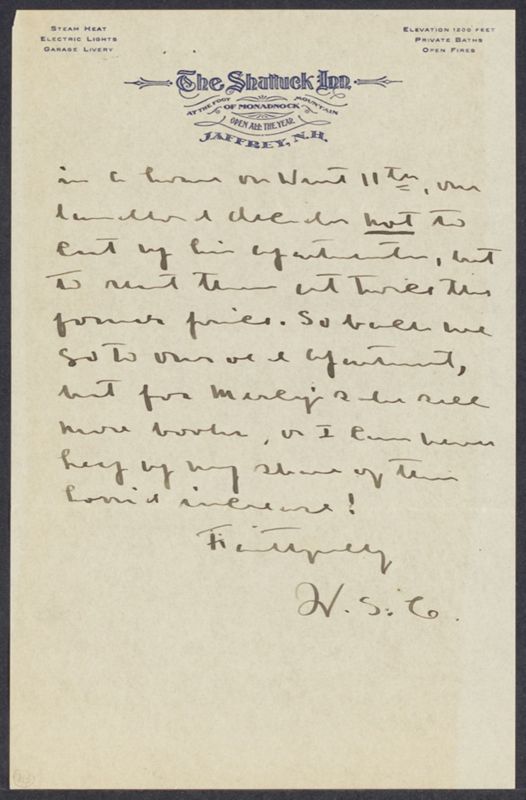 STEAM HEAT
ELECTRIC LIGHTS
GARAGE LIVERY
ELEVATION 1200 FEET
PRIVATE BATHS
OPEN FIRES
The Shattuck Inn
AT THE FOOT OF MONADNOCK MOUNTAIN
OPEN ALL THE YEAR
JAFFREY, N.H.
in a house on West 11th, our
landlord decides not to
cut up his apartments, but
to rent them at twice the
former price. So back we
go to our old apartment,
but for Mercy's sake sell
more books, or I can never
keep up my share of this
horrid increase!
Faithfully
W. S. C.